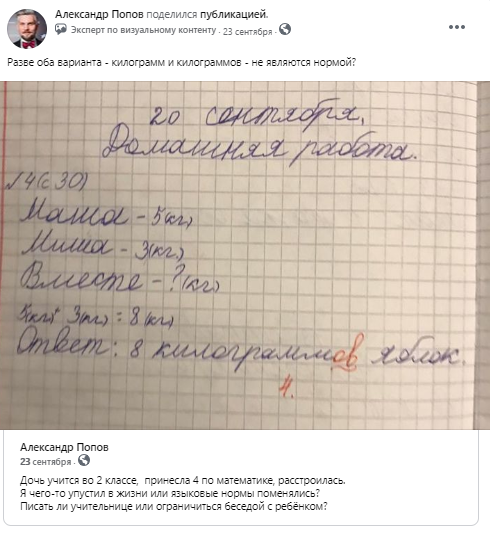 Александр Попов поделился публикацией.
Эксперт по визуальному контенту · 23 сентября ·
Разве оба варианта - килограмм и килограммов - не являются нормой?
20 сентября,
Домашняя работа.
№4(с 30)
Маша - 5(кг)
Миша - 3(кг)
Вместе - ?(кг)
5(кг)+ 3(кг) = 8(кг)
Ответ: 8 килограммов яблок.
4.
Александр Попов
23 сентября ·
Дочь учится во 2 классе, принесла 4 по математике, расстроилась.
Я чего-то упустил в жизни или языковые нормы поменялись?
Писать ли учительнице или ограничиться беседой с ребёнком?